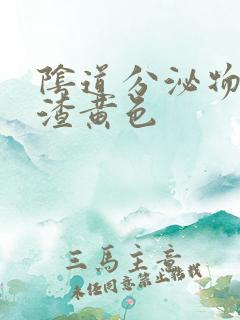 陰道分泌物
渣黄色
三馬主意
未经同意禁止转载